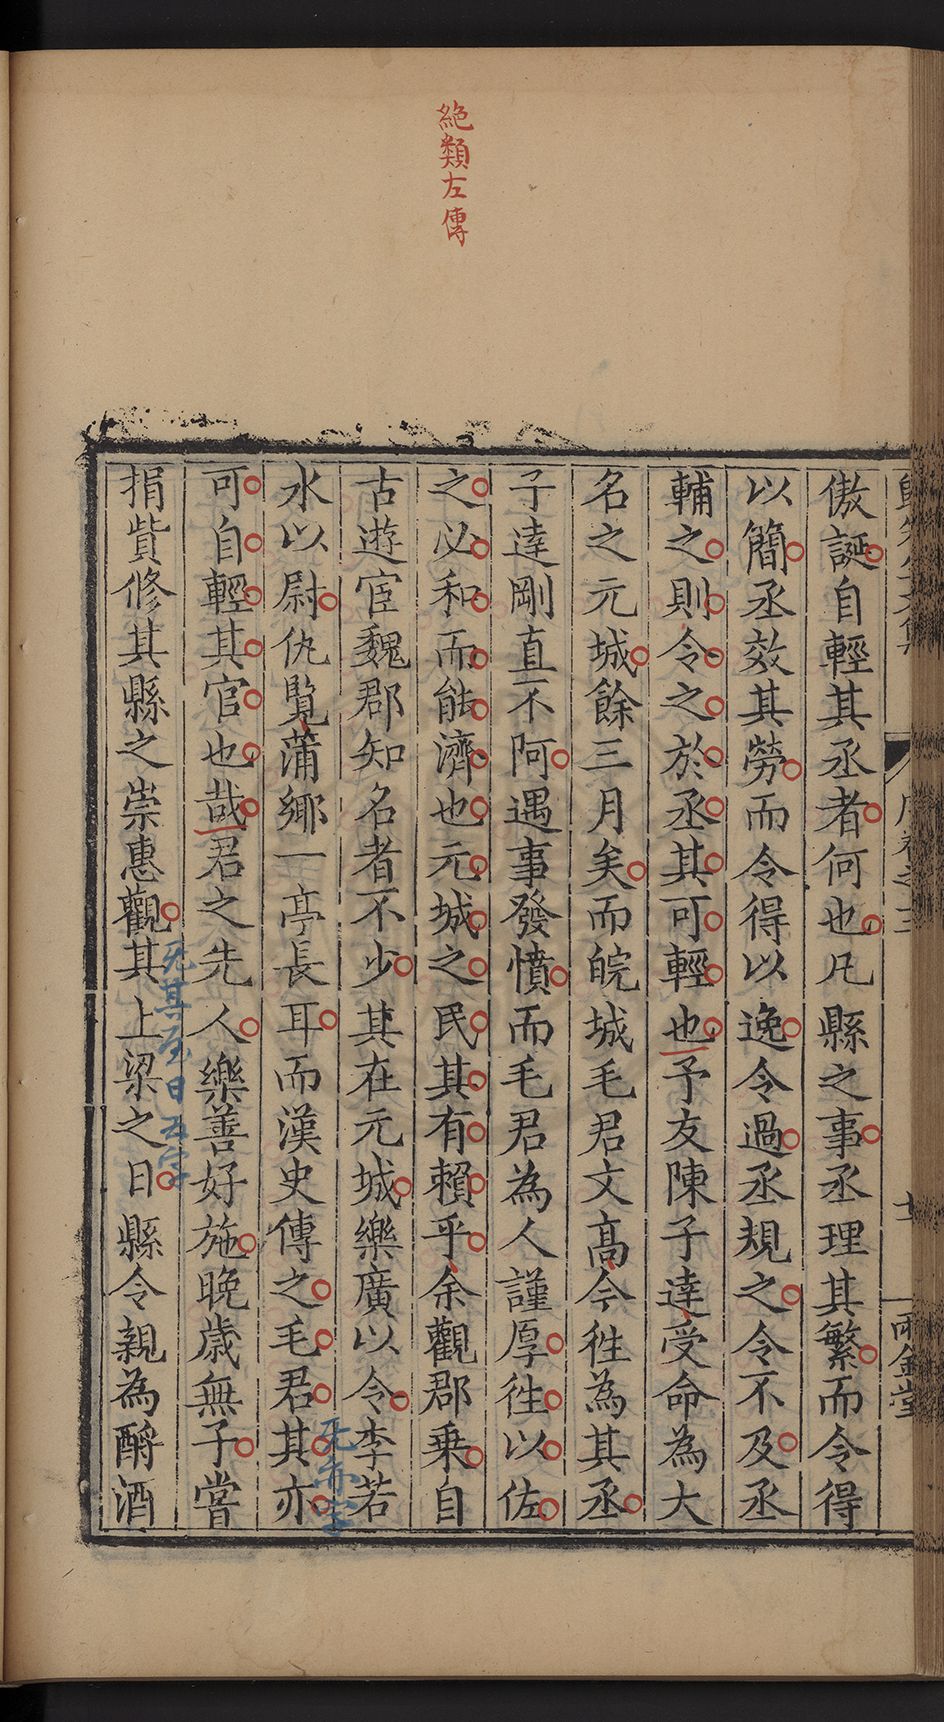 絶類左傳
傲誕自輕其丞者何也凡縣之事丞理其繁而令得
以簡丞效其勞而令得以逸令過丞規之令不及丞
輔之則令之於丞其可輕也予友陳子達受命為大
名之元城餘三月矣而皖城毛君文高今徃為其丞
子達剛直不阿遇事發憤而毛君為人謹厚徃以佐
之必和而能濟也元城之民其有賴乎余觀郡乗自
古遊宦魏郡知名者不少其在元城樂廣以令李若
水以尉仇覧蒲鄉一亭長耳而漢史傳之毛君其亦
无亦字
可自輕其官也哉君之先人樂善好施晚歳無子嘗
捐貲修其縣之崇惠觀其上梁之日縣令親為酹酒
无其至日五字